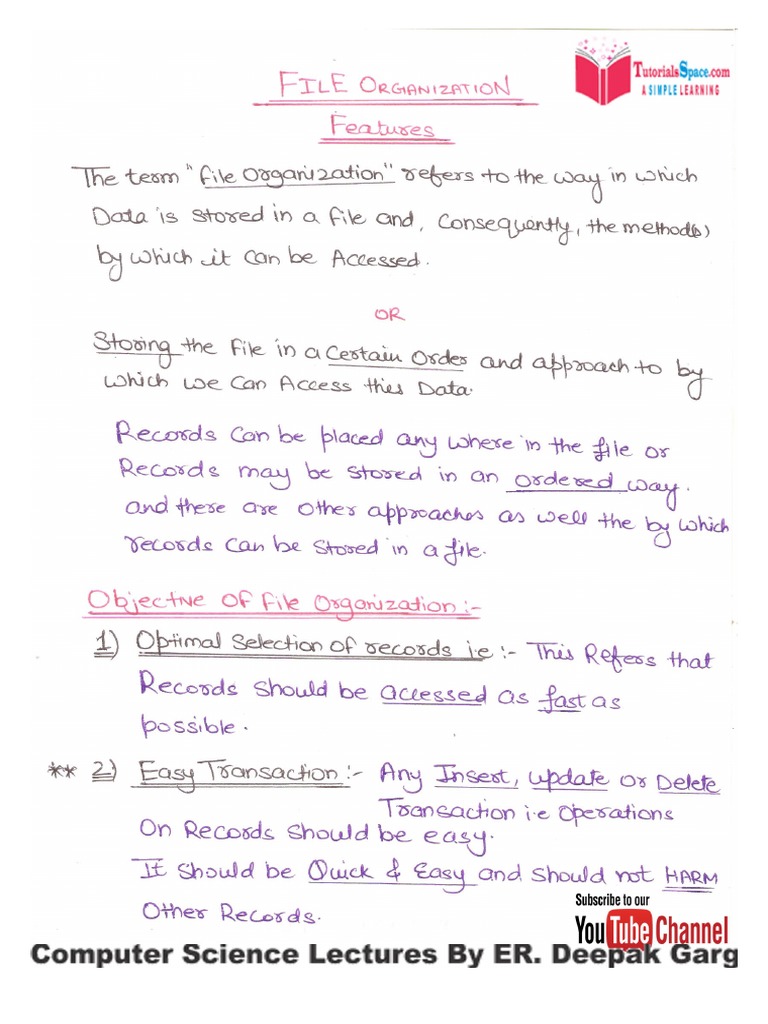 TutorialsSpace.com
A SIMPLE LEARNING
FILE ORGANIZATION
Features
The term "file Organization" refers to the way in which
Data is stored in a file and, Consequently, the method(s)
by which it can be Accessed.
OR
Storing the file in a Certain Order and approach to by
which we Can Access this Data.
Records can be placed any where in the file or
Records may be stored in an ordered way.
and there are other approaches as well the by which
records can be stored in a file.
Objective OF File Organization :-
1) Optimal Selection of records i.e :- This Refers that
Records should be accessed as fast as
possible.
** 2) Easy Transaction :- Any Insert, Update or Delete
Transaction i.e Operations
On Records should be easy.
It should be Quick & Easy and should not HARM
Other Records.
Subscribe to our
YouTube Channel
Computer Science Lectures By ER. Deepak Garg